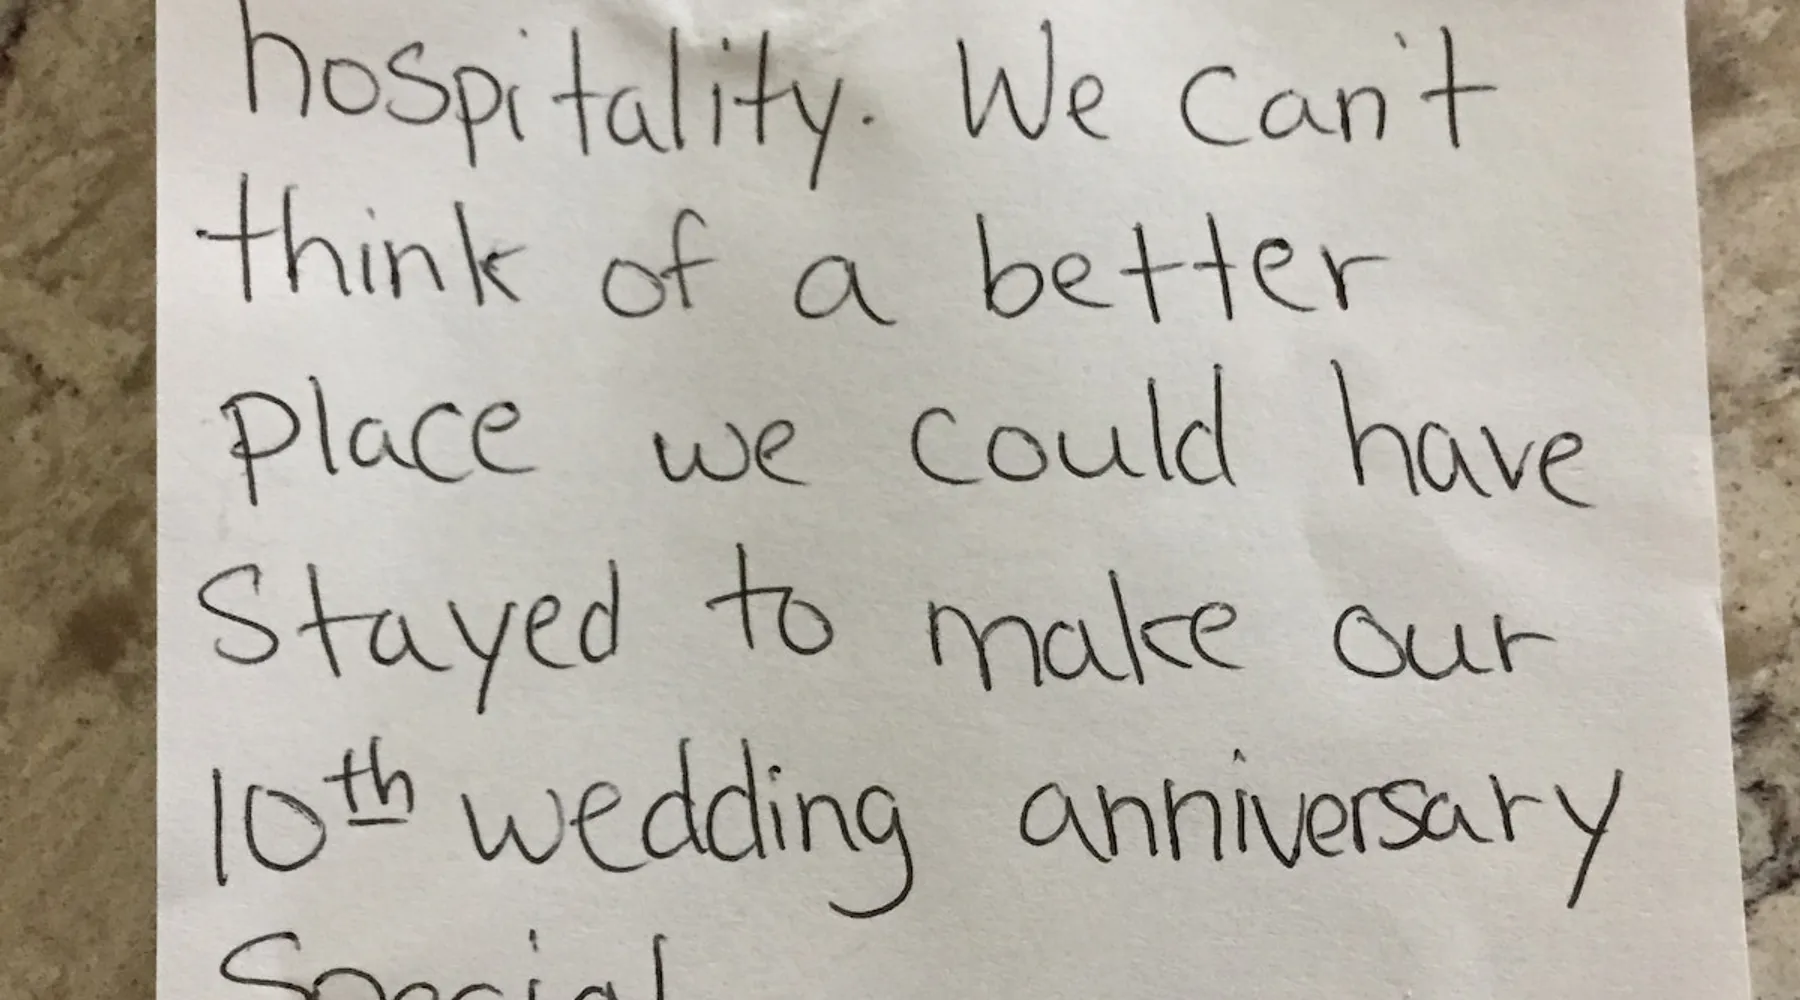 hospitality. We can't
think of a better
place we could have
stayed to make our
10th wedding anniversary
special